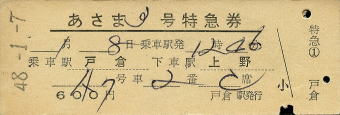 あさま3号特急券
1月8日 乗車駅発 12時46
乗車駅 戸倉 下車駅 上野
4号車 2番 C席
600円 戸倉駅発行
48-1-7
特急①
小
戸倉